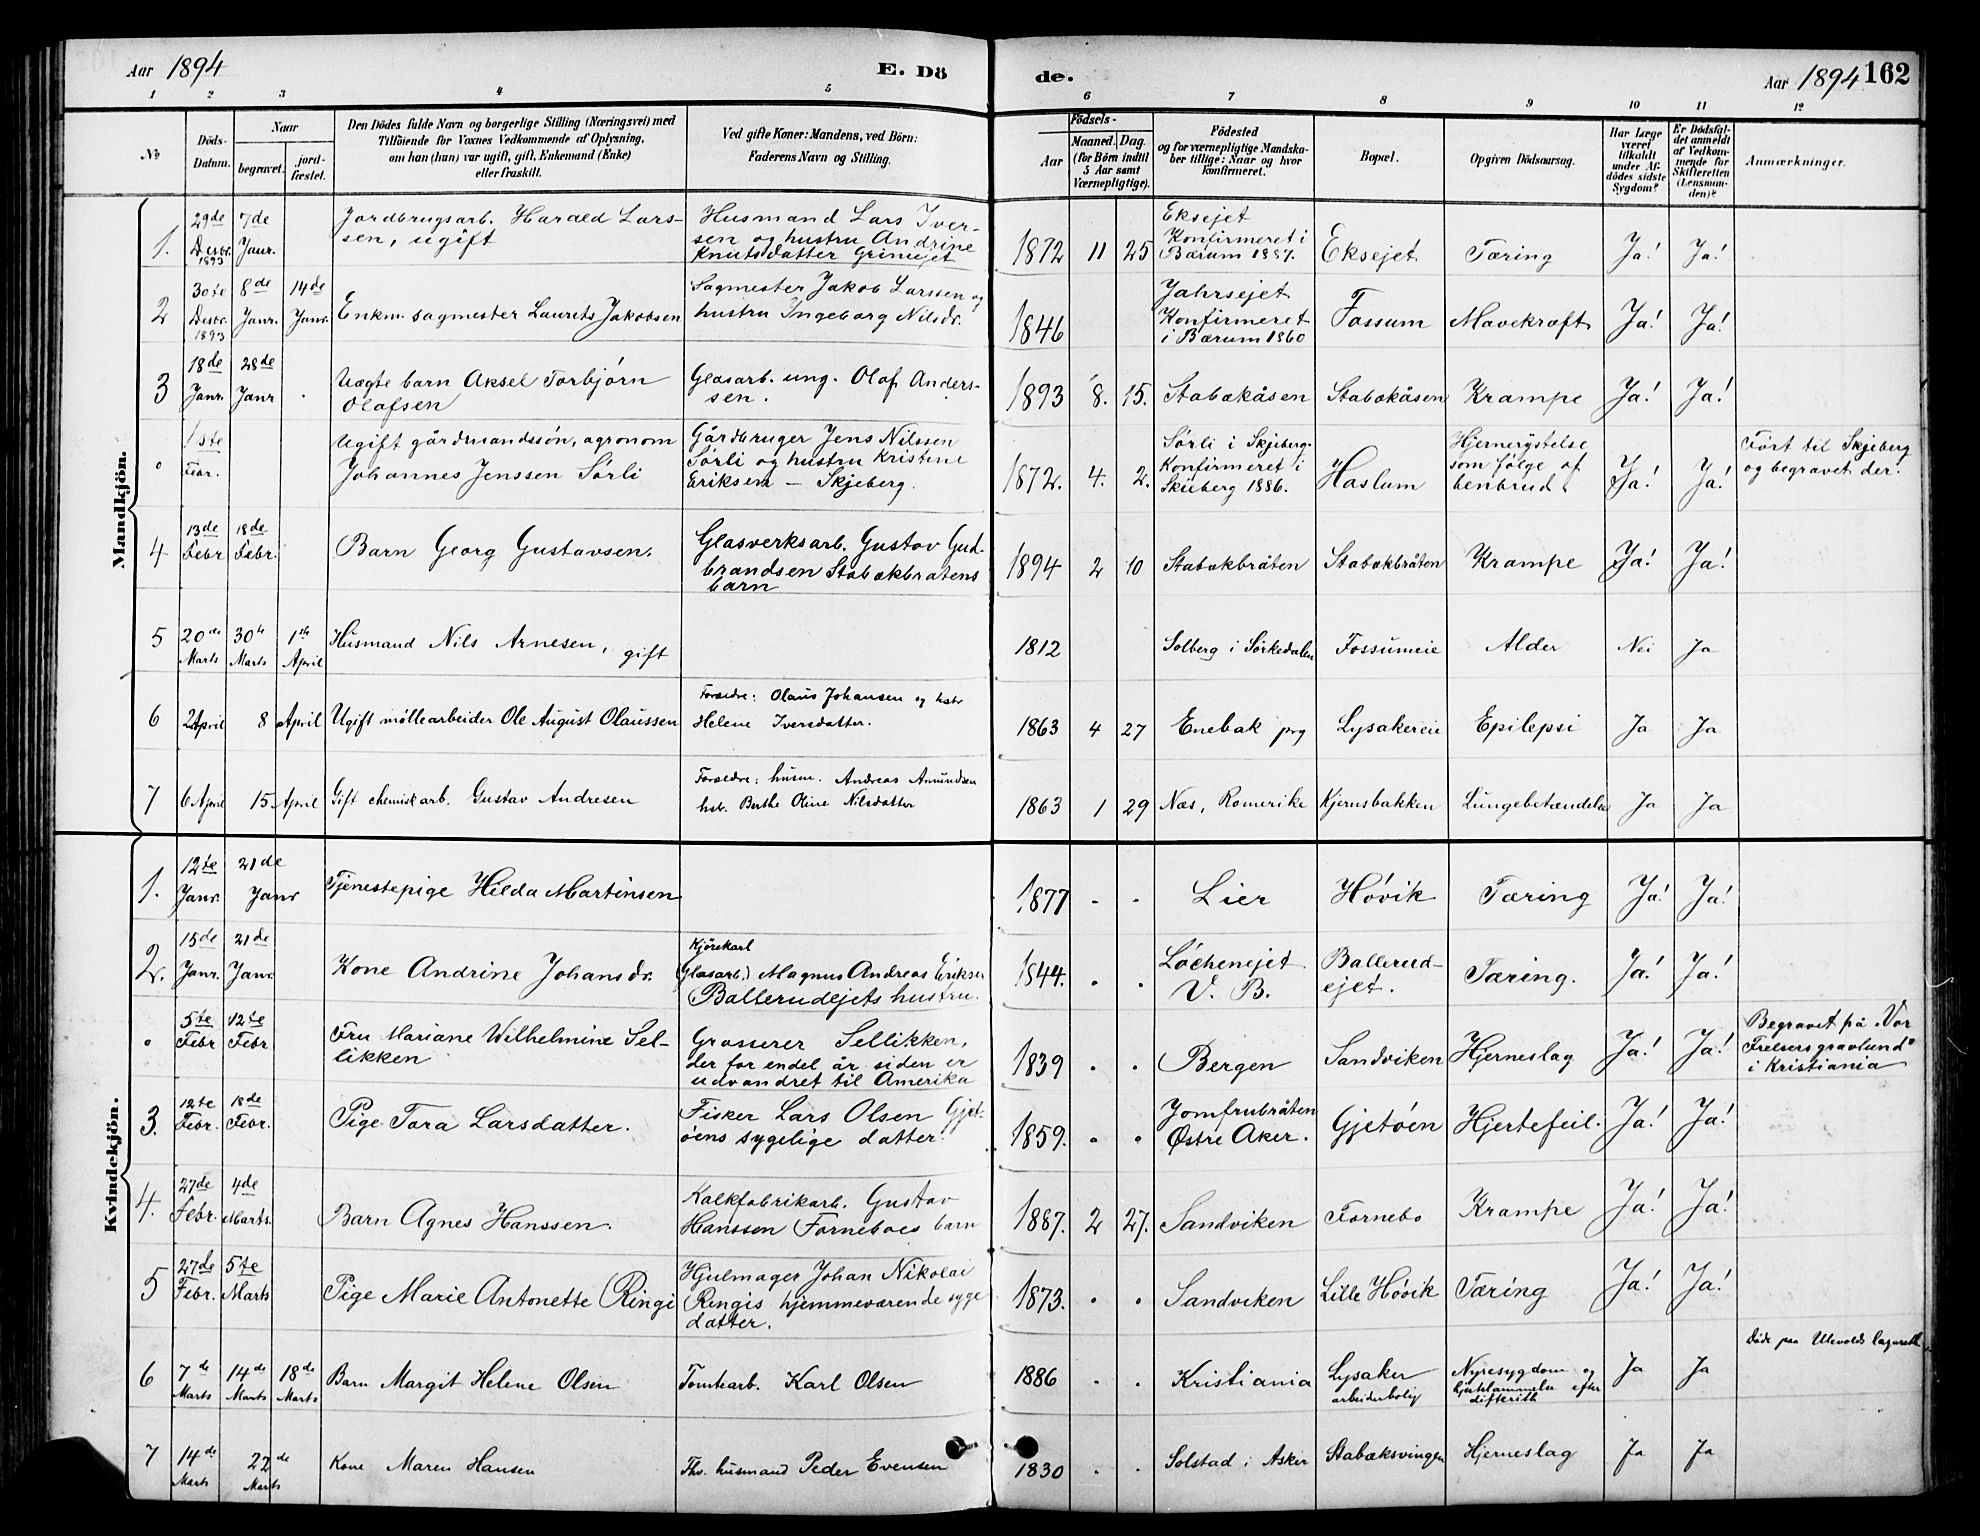 Aar 1894 E. Dö de. Aar 1894 162
1 2 3 4 5 6 7 8 9 10 11 12
No
Döds-
Datum.
Naar
begravet.
jord-
fæstet.
Den Dödes fulde Navn og borgerlige Stilling (Næringsvei) med
Tilföiende for Voxnes Vedkommende af Oplysning,
om han (hun) var ugift, gift, Enkemand (Enke)
eller fraskilt.
Ved gifte Koner: Mandens, ved Börn:
Faderens Navn og Stilling.
Födsels-
Aar
Maaned. Dag.
(for Börn indtil
5 Aar samt
Værnepligtige).
Födested
og for værnepligtige Mandska-
ber tillige: Naar og hvor
konfirmeret.
Bopæl.
Opgiven Dödsaarsag.
Har Læge
været
tilkaldt
under Af-
dödes sidste
Sygdom?
Er Dödsfal-
det anmeldt
af Vedkom-
mende for
Skifteretten
(Lensman-
den)?
Anmærkninger.
Mandkjön.
1. 29de Desbr. 1893 7de Janr.
Jordbrugsarb. Harald Lars-
sen, ugift
Husmand Lars Iver-
sen og hustru Andrine
Knutsdatter
1872 11 25
Eksejet
Konfirmeret i
Bærum 1887.
Eksejet Tæring Ja! Ja!
2 30te Desbr. 1893 8de Janr. 14de Janr.
Enkm. sagmester Laurets Jakobsen
Sagmester Jakob Larssen og
hustru Ingeborg Nilsdr.
1846
Jahrsejet
Konfirmeret
i Bærum 1860
Fossum Mavekræft Ja! Ja!
3 18de Janr. 28de Janr
Uægte barn Aksel Torbjörn
Olafsen
Glasarb. ung. Olaf Anders-
sen.
1893 8. 15. Stabækåsen Stabækåsen Krampe Ja! Ja!
1ste Febr.
Ugift gårdmandssön, agronom
Johannes Jenssen Sörli
Gårdbruger Jens Nilssen
Sörli og hustru Kristine
Eriksen – Skjeberg.
1872. 4. 2.
Sørli i Skjeberg.
Konfirmeret i
Skjeberg 1886.
Haslum
Hjernerystelse
som følge af
benbrud
Ja! Ja!
Fört til Skjeberg
og begravet der.
4 13de Febr 18de Febr.
Barn Georg Gustavsen.
Glasverksarb. Gustav Gud-
brandsen Stabækbråtens
barn
1894 2 10 Stabækbråten Stabækbråten Krampe Ja! Ja!
5 20de Marts 30te Marts 1ste April
Husmand Nils Arnesen, gift
1812 Solberg i Sörkedalen Fossumeie Alder Nei Ja
6 2 April 8 April Ugift möllearbeider Ole August Olaussen
Forældre: Olaus Johansen og hstr
Helene Iversdatter.
1863 4 27 Enebak prg Lysakereie Epilepsi Ja Ja
7 6 April 15 April Gift chemisk arb. Gustav Andresen
Forældre: husm. Andreas Amundsen
hst. Berthe Oline Nilsdatter
1863 1 29 Næs, Romerike Kjernsbakken Lungebetændelse Ja Ja
Kvindekjön.
1. 12te Janr. 21de Janr
Tjenestepige Hilda Martinsen
1877 Lier Hövik Tæring Ja! Ja!
2. 15de Janr. 21de Janr
Kone Andrine Johansdr.
Kjörekarl
(Glasarb.) Magnus Andreas Eriksen
Ballerudejets hustru.
1844.
Löchenejet
V. B.
Ballerud-
ejet.
Tæring. Ja! Ja!
5te Febr 12te Febr
Fru Mariane Wilhelmine Sel-
likken
Grosserer Sellikken,
der for endel år siden er
udvandret til Amerika
1839 Bergen Sandviken Hjerneslag Ja! Ja!
Begravet på "Vor
Frelsers gravlund"
i Kristiania
3. 12te Febr. 18de Febr.
Pige Tora Larsdatter.
Fisker Lars Olsen Gjet-
öens sygelige datter.
1859.
Jomfrubråten
Østre Aker.
Gjetöen Hjertefeil. Ja! Ja!
4. 27de Febr. 4de Marts.
Barn Agnes Hanssen.
Kalkfabrikarb. Gustav
Hanssen Forneboes barn
1887. 2 27. Sandviken Fornebo Krampe Ja! Ja!
5 27de Febr. 5te Marts
Pige Marie Antonette Ringi
Hjulmager Johan Nikolai
Ringis hjemmeværende syge
datter.
1873. Sandviken Lille Hövik Tæring Ja! Ja!
6 7de Marts 14de Marts 18de Marts
Barn Margit Helene Olsen
Tomtearb. Karl Olsen
1886 Kristiania
Lysaker
arbeiderbolig
Nyresygdom og
hjertelammelse efter
difterith
Ja Ja
Död paa Ullevolds lazareth
7 14de Marts 22de Marts
Kone Maren Hansen
Fhv. husmand Peder Evensen
1830 Solstad i Asker Stabæksvingen Hjerneslag Ja Ja